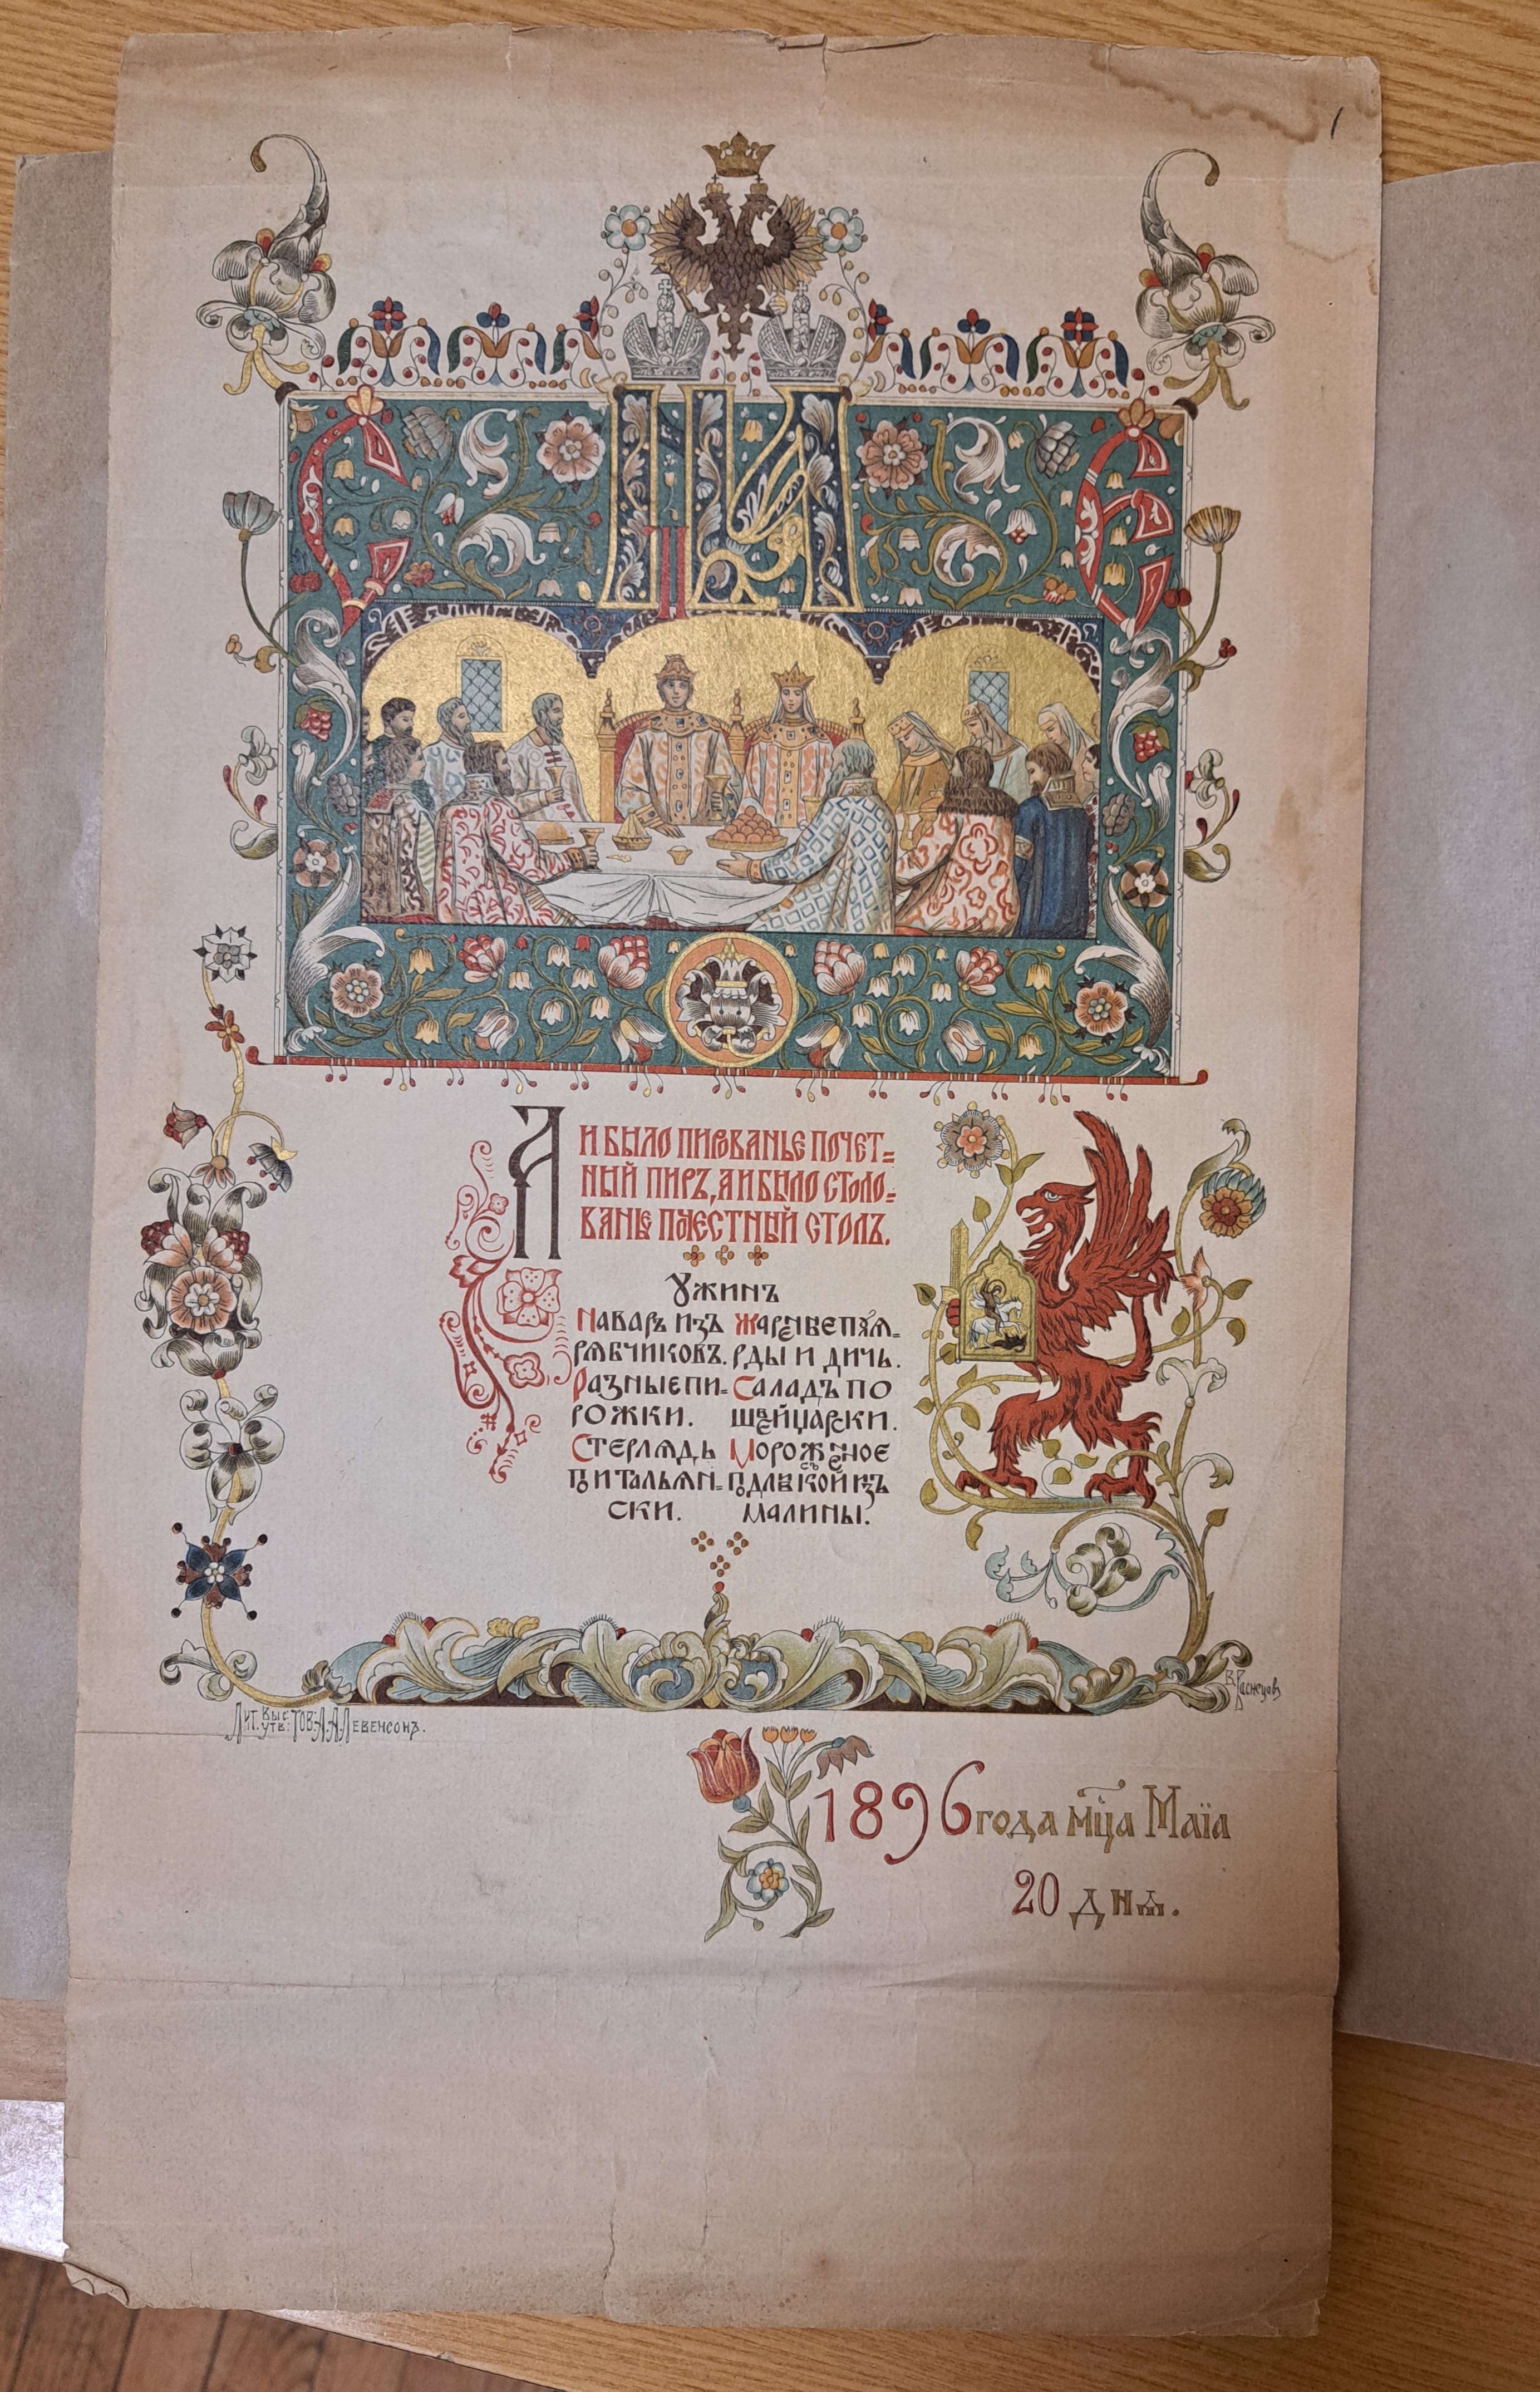 А И БЫЛО ПИРОВАНЬЕ ПОЧЕТ=
НЫЙ ПИРЪ, А И БЫЛО СТОЛО=
ВАНЬЕ ПОЧЕСТНЫЙ СТОЛЪ.
УЖИНЪ
НАВАРЪ ИЗЪ
РЯБЧИКОВЪ.
РАЗНЫЕ ПИ=
РОЖКИ.
СТЕРЛЯДЬ
ПО ИТАЛЬЯН=
СКИ.
ЖАРЕНЫЕ ПУЛЯ=
РДЫ И ДИЧЬ.
САЛАДЪ ПО
ШВЕЙЦАРСКИ.
МОРОЖЕНОЕ СЪ
ПОДЛИВКОЙ ИЗЪ
МАЛИНЫ.
В Васнецовъ
Лит. Выс: Утв: Тов: А. А. Левенсонъ.
1896 года мц҃а Маїа
20 дня.